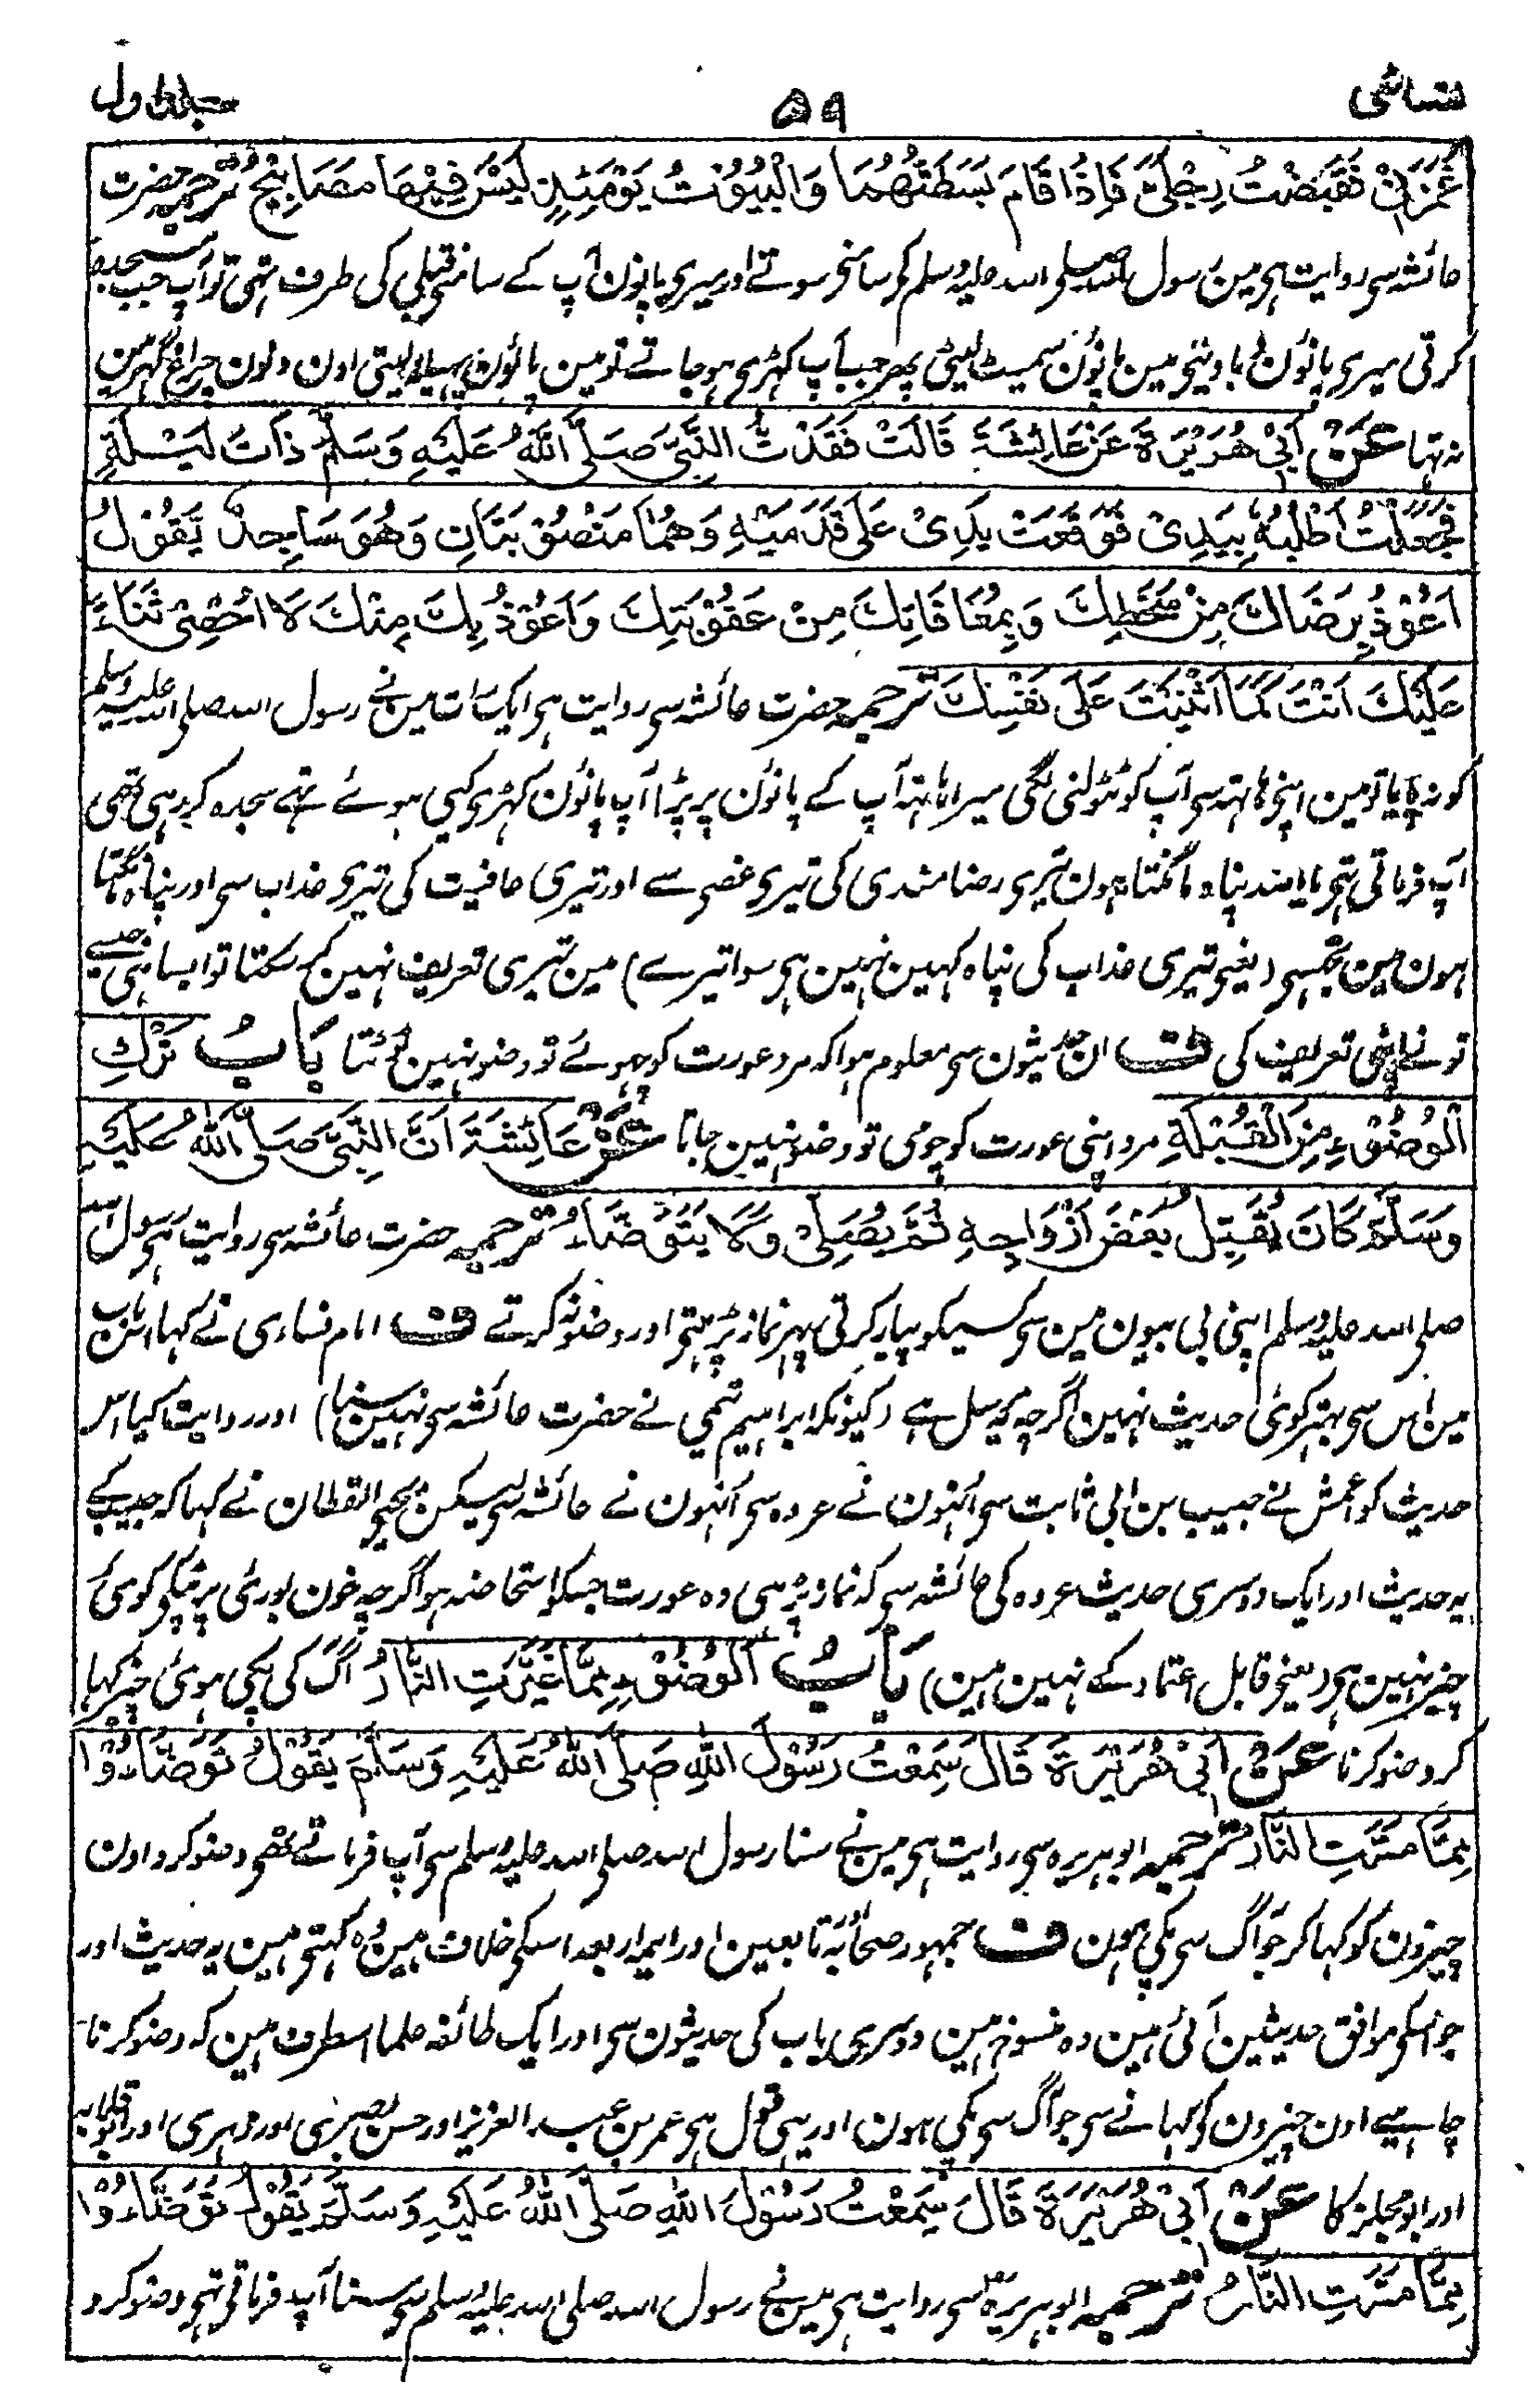 نسائی
۵۹
جلد اول
غَمَزَنِیْ فَقَبَضْتُ رِجْلَیَّ فَاِذَا قَامَ بَسَطْتُّهُمَا وَالْبُیُوْتُ یَوْمَئِذٍ لَیْسَ فِیْهَا مَصَابِیْحُ ترجمہ حضرت
عائشہ سی روایت ہی مین رسول اللہ صلی اللہ علیہ وسلم کی سامنی سوتے اور میری پانون آپ کے سامنی قبلی کی طرف تہی تو آپ جب سجدہ
کرتی میری پانون دبا دیتی مین پانون سمیٹ لیتی پھر جب آپ کہڑی ہو جاتے تو مین پانون پہیلا لیتی اون دنون چراغ گہر مین
نہ تہا عَنْ اَبِیْ هُرَیْرَةَ عَنْ عَائِشَةَ قَالَتْ فَقَدْتُّ النَّبِیَّ صَلَّی اللّٰهُ عَلَیْهِ وَسَلَّمَ ذَاتَ لَیْلَةٍ
فَجَعَلْتُ اَطْلُبُهٗ بِیَدِیْ فَوَقَعَتْ یَدِیْ عَلٰی قَدَمَیْهِ وَهُمَا مَنْصُوْبَتَانِ وَهُوَ سَاجِدٌ یَّقُوْلُ
اَعُوْذُ بِرِضَاكَ مِنْ سَخَطِكَ وَبِمُعَافَاتِكَ مِنْ عَقُوْبَتِكَ وَاَعُوْذُ بِكَ مِنْكَ لَا اُحْصِیْ ثَنَاءً
عَلَیْكَ اَنْتَ كَمَا اَثْنَیْتَ عَلٰی نَفْسِكَ ترجمہ حضرت عائشہ سی روایت ہی ایک رات مین نے رسول اللہ صلی اللہ علیہ وسلم
کو نہ پایا تو مین اپنی ہاتہہ سی آپ کو ٹٹولنی لگی میرا ہاتہہ آپ کے پانون پر پڑا آپ پانون کہڑی کیی ہوئے تہے سجدہ کر رہی تھی
آپ فرماتی تہی یا اللہ پناہ مانگتا ہون تیری رضامندی کی تیری غصی سے اور تیری عافیت کی تیری عذاب سی اور پناہ مانگتا
ہون مین تجہسی (یعنی تیری عذاب کی پناہ کہین نہین ہی سوا تیرے) مین تیری تعریف نہین کر سکتا تو ایسا ہی جیسے
تونے اپنی تعریف کی ف ان حدیثون سی معلوم ہوا کہ مرد عورت کو چہوئے تو وضو نہین ٹوٹتا بَابُ تَرْكِ
الْوُضُوْءِ مِنَ الْقُبْلَةِ مرد اپنی عورت کو چومی تو وضو نہین جاتا عَنْ عَائِشَةَ اَنَّ النَّبِیَّ صَلَّی اللّٰهُ عَلَیْهِ
وَسَلَّمَ كَانَ یُقَبِّلُ بَعْضَ اَزْوَاجِهٖ ثُمَّ یُصَلِّیْ وَلَا یَتَوَضَّاءُ ترجمہ حضرت عائشہ سی روایت ہی رسول اللہ
صلی اللہ علیہ وسلم اپنی بی بیون مین سی کسیکو پیار کرتی پہر نماز پڑہتی اور وضو نہ کرتے ف امام نسائی نے کہا اس باب
مین اس سی بہتر کوئی حدیث نہین اگرچہ مرسل ہے (کیونکہ ابراہیم تیمی نے حضرت عائشہ سی نہین سنا) اور روایت کیا اس
حدیث کو اعمش نے حبیب بن ابی ثابت سی انہون نے عروہ سی انہون نے عائشہ سی لیکن یحیی القطان نے کہا کہ حبیب کے
یہ حدیث اور ایک دوسری حدیث عروہ کی عائشہ سی کہ نماز پڑہی وہ عورت جسکو استحاضہ ہو اگرچہ خون بوریئی پر ٹپکی کوئی
چیز نہین ہی (یعنی قابل اعتماد کے نہین ہین) بَابُ الْوُضُوْءِ مِمَّا غَیَّرَتِ النَّارُ آگ کی پکی ہوئی چیز کہا
کر وضو کرنا عَنْ اَبِیْ هُرَیْرَةَ قَالَ سَمِعْتُ رَسُوْلَ اللّٰهِ صَلَّی اللّٰهُ عَلَیْهِ وَسَلَّمَ یَقُوْلُ تَوَضَّاءُوْا
مِمَّا مَسَّتِ النَّارُ ترجمہ ابو ہریرہ سی روایت ہی مین نے سنا رسول اللہ صلی اللہ علیہ وسلم سی آپ فرماتے تھی وضو کرو اون
چیزون کو کہا کر جو آگ سی پکی ہون ف جمہور صحابہ تابعین اور ایمہ اربعہ اسکی خلاف ہین وہ کہتی ہین یہ حدیث اور
جو اسکی موافق حدیثین آئی ہین وہ منسوخ ہین دوسری باب کی حدیثون سی اور ایک طائفہ علما اسطرف ہین کہ وضو کرنا
چاہیے اون چیزون کو کہانے سی جو آگ سی پکی ہون اور یہی قول ہی عمر بن عبد العزیز اور حسن بصری اور زہری اور ابو قلابہ
اور ابو مجلز کا عَنْ اَبِیْ هُرَیْرَةَ قَالَ سَمِعْتُ رَسُوْلَ اللّٰهِ صَلَّی اللّٰهُ عَلَیْهِ وَسَلَّمَ یَقُوْلُ تَوَضَّاءُوْا
مِمَّا مَسَّتِ النَّارُ ترجمہ ابو ہریرہ سی روایت ہی مین نے رسول اللہ صلی اللہ علیہ وسلم سی سنا آپ فرماتی تہی وضو کرو